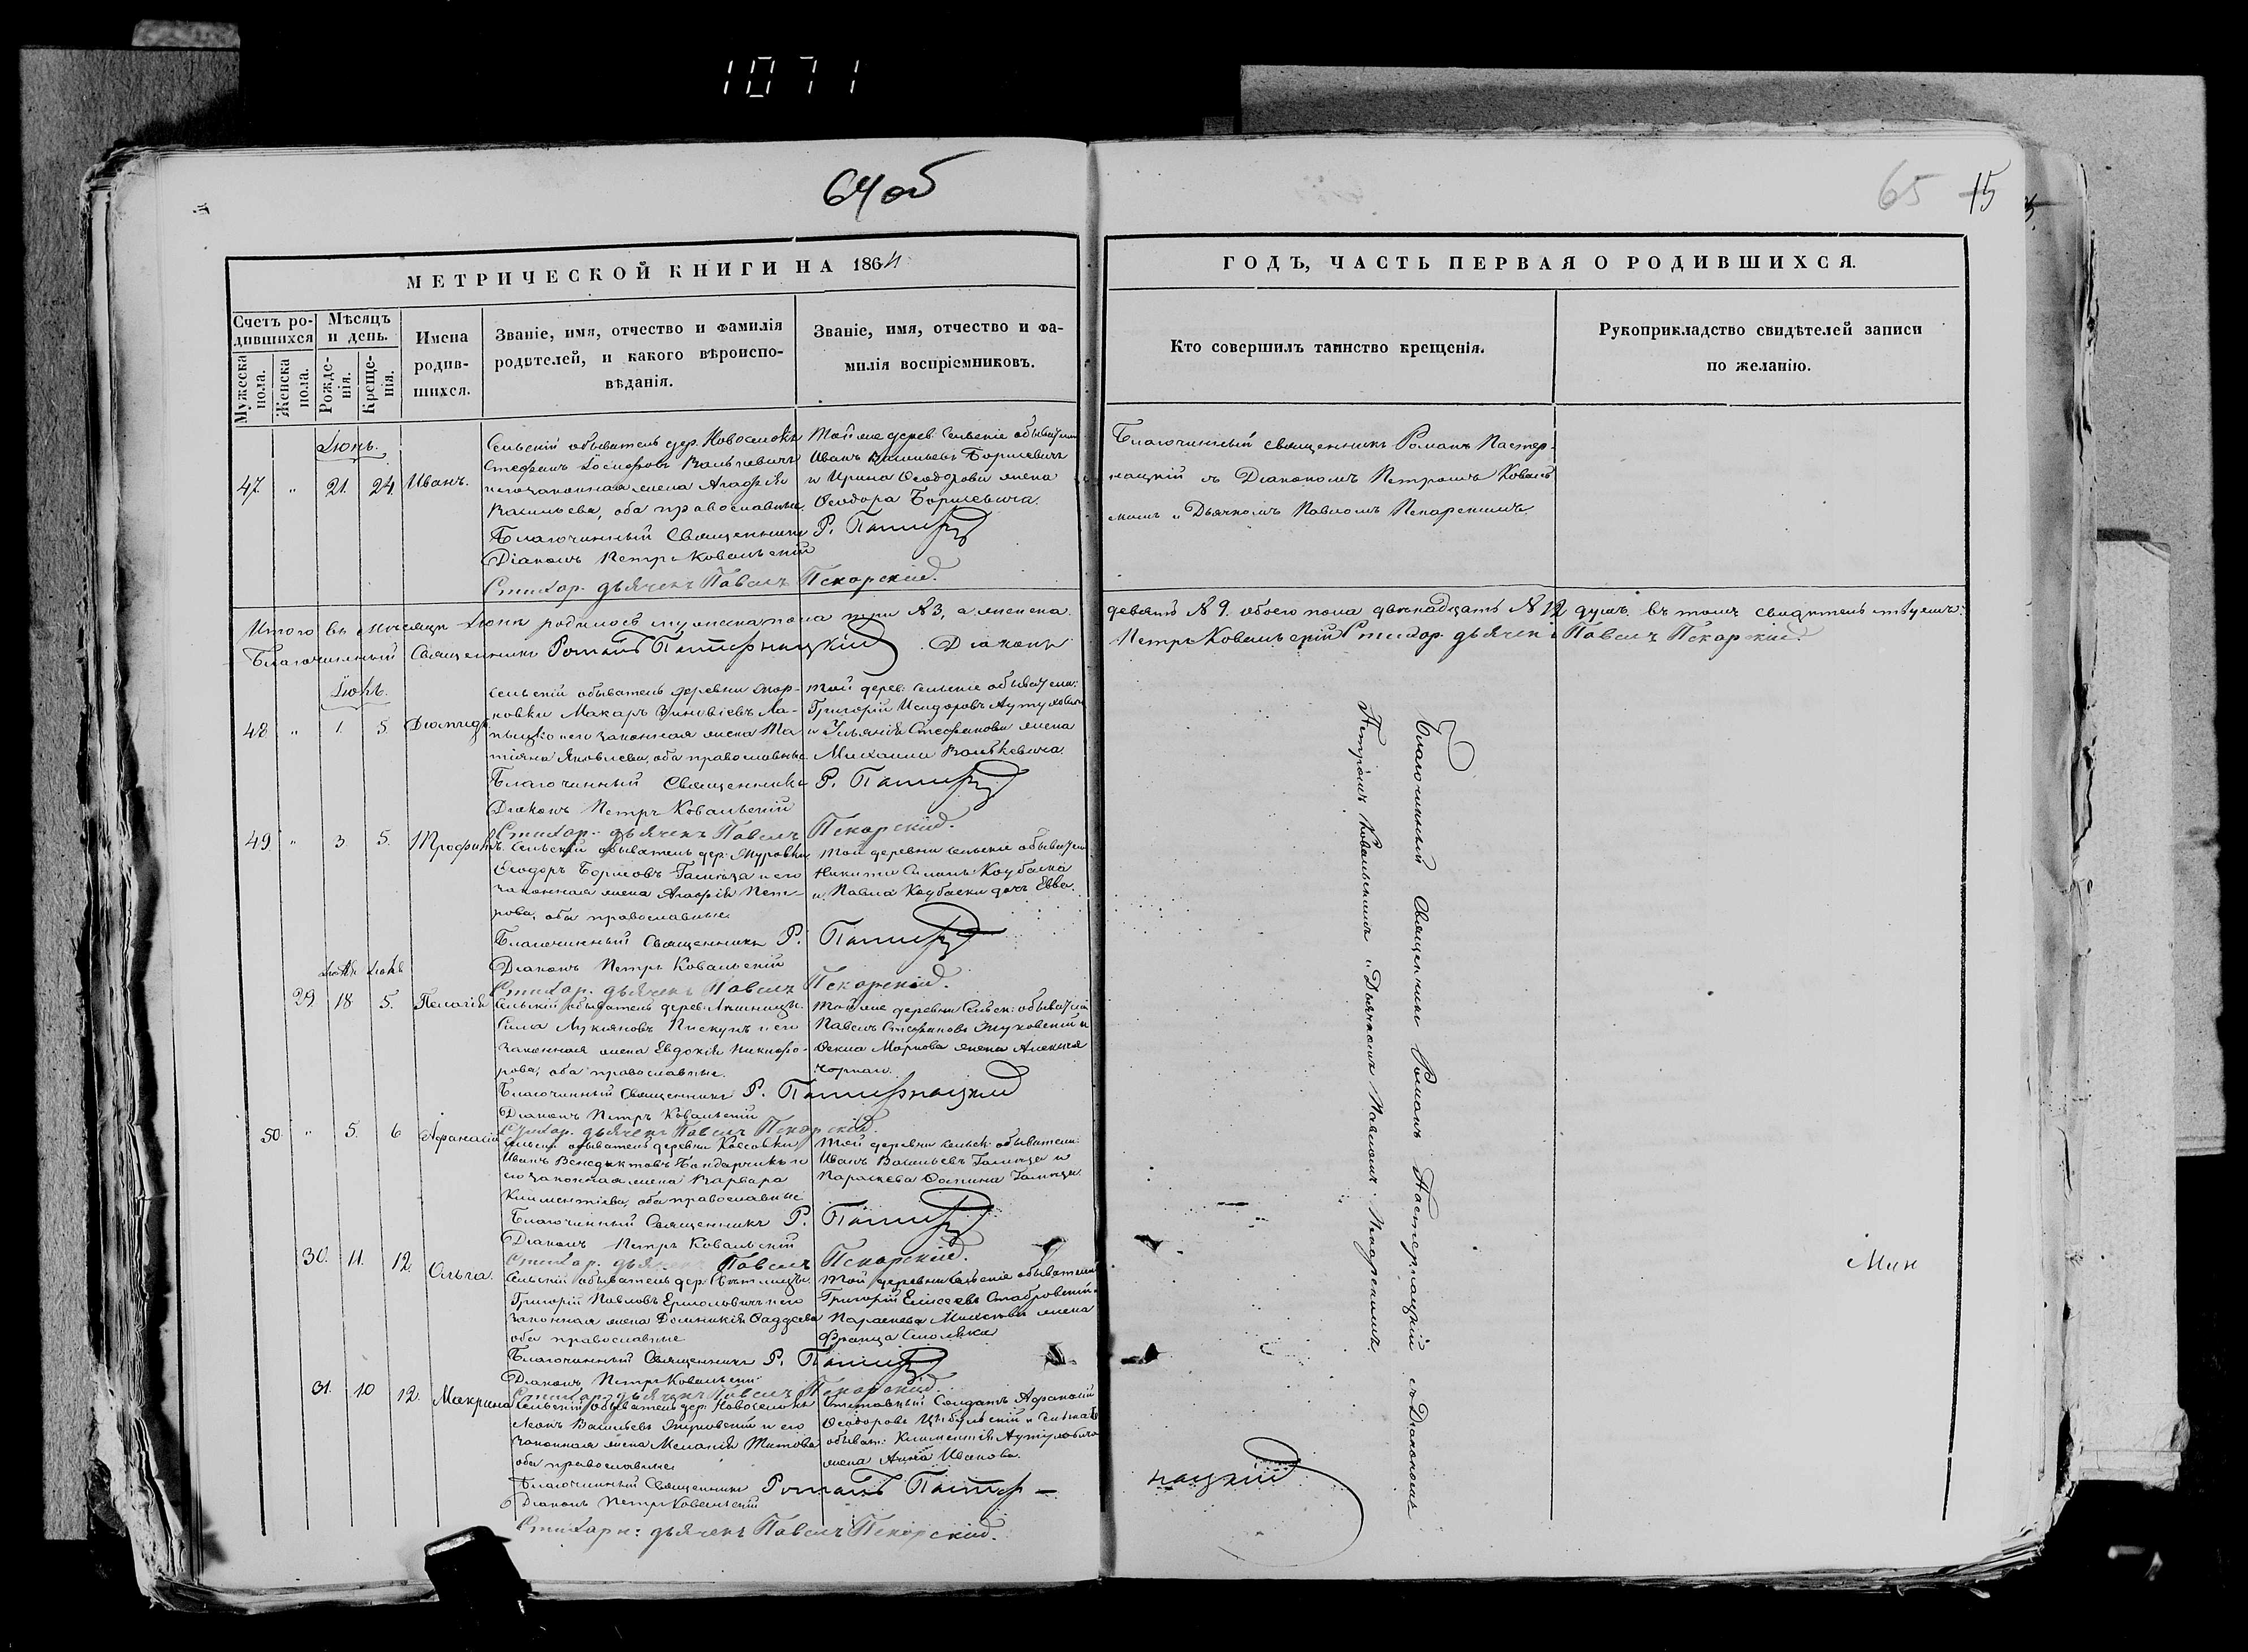 1071
64об
65 15
МЕТРИЧЕСКОЙ КНИГИ НА 1864
ГОДЪ, ЧАСТЬ ПЕРВАЯ О РОДИВШИХСЯ.
Счетъ ро-
дившихся
Мужеска
пола.
Женска
пола.
Мѣсяцъ
и день.
Рожде-
нія.
Креще-
нія.
Имена
родив-
шихся.
Званіе, имя, отчество и фамилія
родителей, и какого вѣроиспо-
вѣданія.
Званіе, имя, отчество и фа-
милія воспріемниковъ.
Кто совершилъ таинство крещенія.
Рукоприкладство свидѣтелей записи
по желанію.
Іюнь.
47. " 21. 24. Иванъ.
Сельскій обыватель дер. Новоселокъ
Стефанъ Валькевичъ
и его законная жена Агафія
Васильева, оба православные.
Тойже дерев. Сельскіе обыватели
Иванъ Васильевъ Борисевичъ
и Ирина Ѳеодорова жена
Ѳеодора Борисевича.
Благочинный Священникъ Р. Пастер
Діаконъ Петръ Ковальскій
Стихар. дьячекъ Павелъ Пекарскій.
Благочинный священникъ Романъ Пастер-
нацкій съ Діакономъ Петромъ Коваль
скимъ и Дьячкомъ Павломъ Пекарскимъ.
Итого въ мѣсяцѣ Іюнѣ родилось мужеска пола три №3, а женска
девять №9. обоего пола двѣнадцать №12 душъ. въ томъ свидѣтельствуемъ:
Благочинный Священникъ Романъ Пастернацкій Діаконъ
Петръ Ковальскій Стихар. дьячекъ Павелъ Пекарскій.
Іюль.
48. " 1. 5. Діомидъ
Сельскій обыватель деревни
Макаръ Зиновіевъ
и его законная жена Та-
тіяна Яковлева, оба православные
Той дерев. Сельскіе обыватели:
Григорій Исидоровъ
и Ульянія Стефанова жена
Михаила Валькевича.
Благочинный Священникъ Р. Пастер
Діаконъ Петръ Ковальскій
Стихар. дьячекъ Павелъ Пекарскій.
49. " 3. 5. Трофимъ.
Сельскій обыватель дер. Муровки
Ѳеодоръ Борисовъ и его
законная жена Агафія Пет-
рова, оба православные
Той деревни сельскіе обыватели
Никита Колбаска
и Павла Колбаски дочь Евва.
Благочинный Священникъ Р. Пастер
Діаконъ Петръ Ковальскій
Стихар. дьячекъ Павелъ Пекарскій.
29 18 5. Пелагія
Сельскій обыватель дерев.
Сила Лукіяновъ Пискунъ и его
законная жена Евдокія Никифо-
рова, оба православные.
Тойже деревни Сельск. обыватели
Павелъ Стефановъ Жуковскій и
Ѳекла Маркова жена Алексѣя
Благочинный Священникъ Р. Пастернацкій
Діаконъ Петръ Ковальскій
Стихар. дьячекъ Павелъ Пекарскій.
50. " 5. 6 Афанасій
Сельскій обыватель деревни
Иванъ Венедиктовъ Бондарчикъ и
его законная жена Варвара
Климентіева, оба православные
Той деревни сельск. обыватели:
Иванъ Васильевъ и
Параскева
Благочинный Священникъ Р. Пастер
Діаконъ Петръ Ковальскій
Стихар. дьячекъ Павелъ Пекарскій.
30. 11. 12. Ольга.
Сельскій обыватель дер.
Григорій Павловъ Ермоловичъ и его
законная жена Домникія Ѳаддеева
оба православные
Той деревни сельскіе обыватели
Григорій Елисеевъ
Параскева жена
Франца
Благочинный Священникъ Р. Пастер
Діаконъ Петръ Ковальскій
Стихар. дьячекъ Павелъ Пекарскій.
31. 10 12. Макрина
Сельскій обыватель дер. Новоселокъ
Васильевъ Жуковскій и его
законная жена Меланія Титова
оба православные
Солдатъ Афанасій
Ѳеодоровъ и
обыват. Климентія
жена Анна Иванова.
Благочинный Священникъ Романъ Пастер-
нацкій
Діаконъ Петръ Ковальскій
Стихарн: дьячекъ Павелъ Пекарскій.
Благочинный Священникъ Романъ Пастернацкій съ Діакономъ
Петромъ Ковальскимъ и Дьячкомъ Павломъ Пекарскимъ.